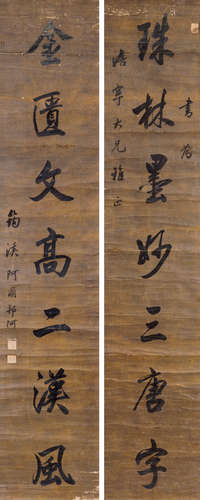 書為
珠林墨妙三唐字
大兄雅正
金匱文髙二漢風
筠溪阿爾邦阿